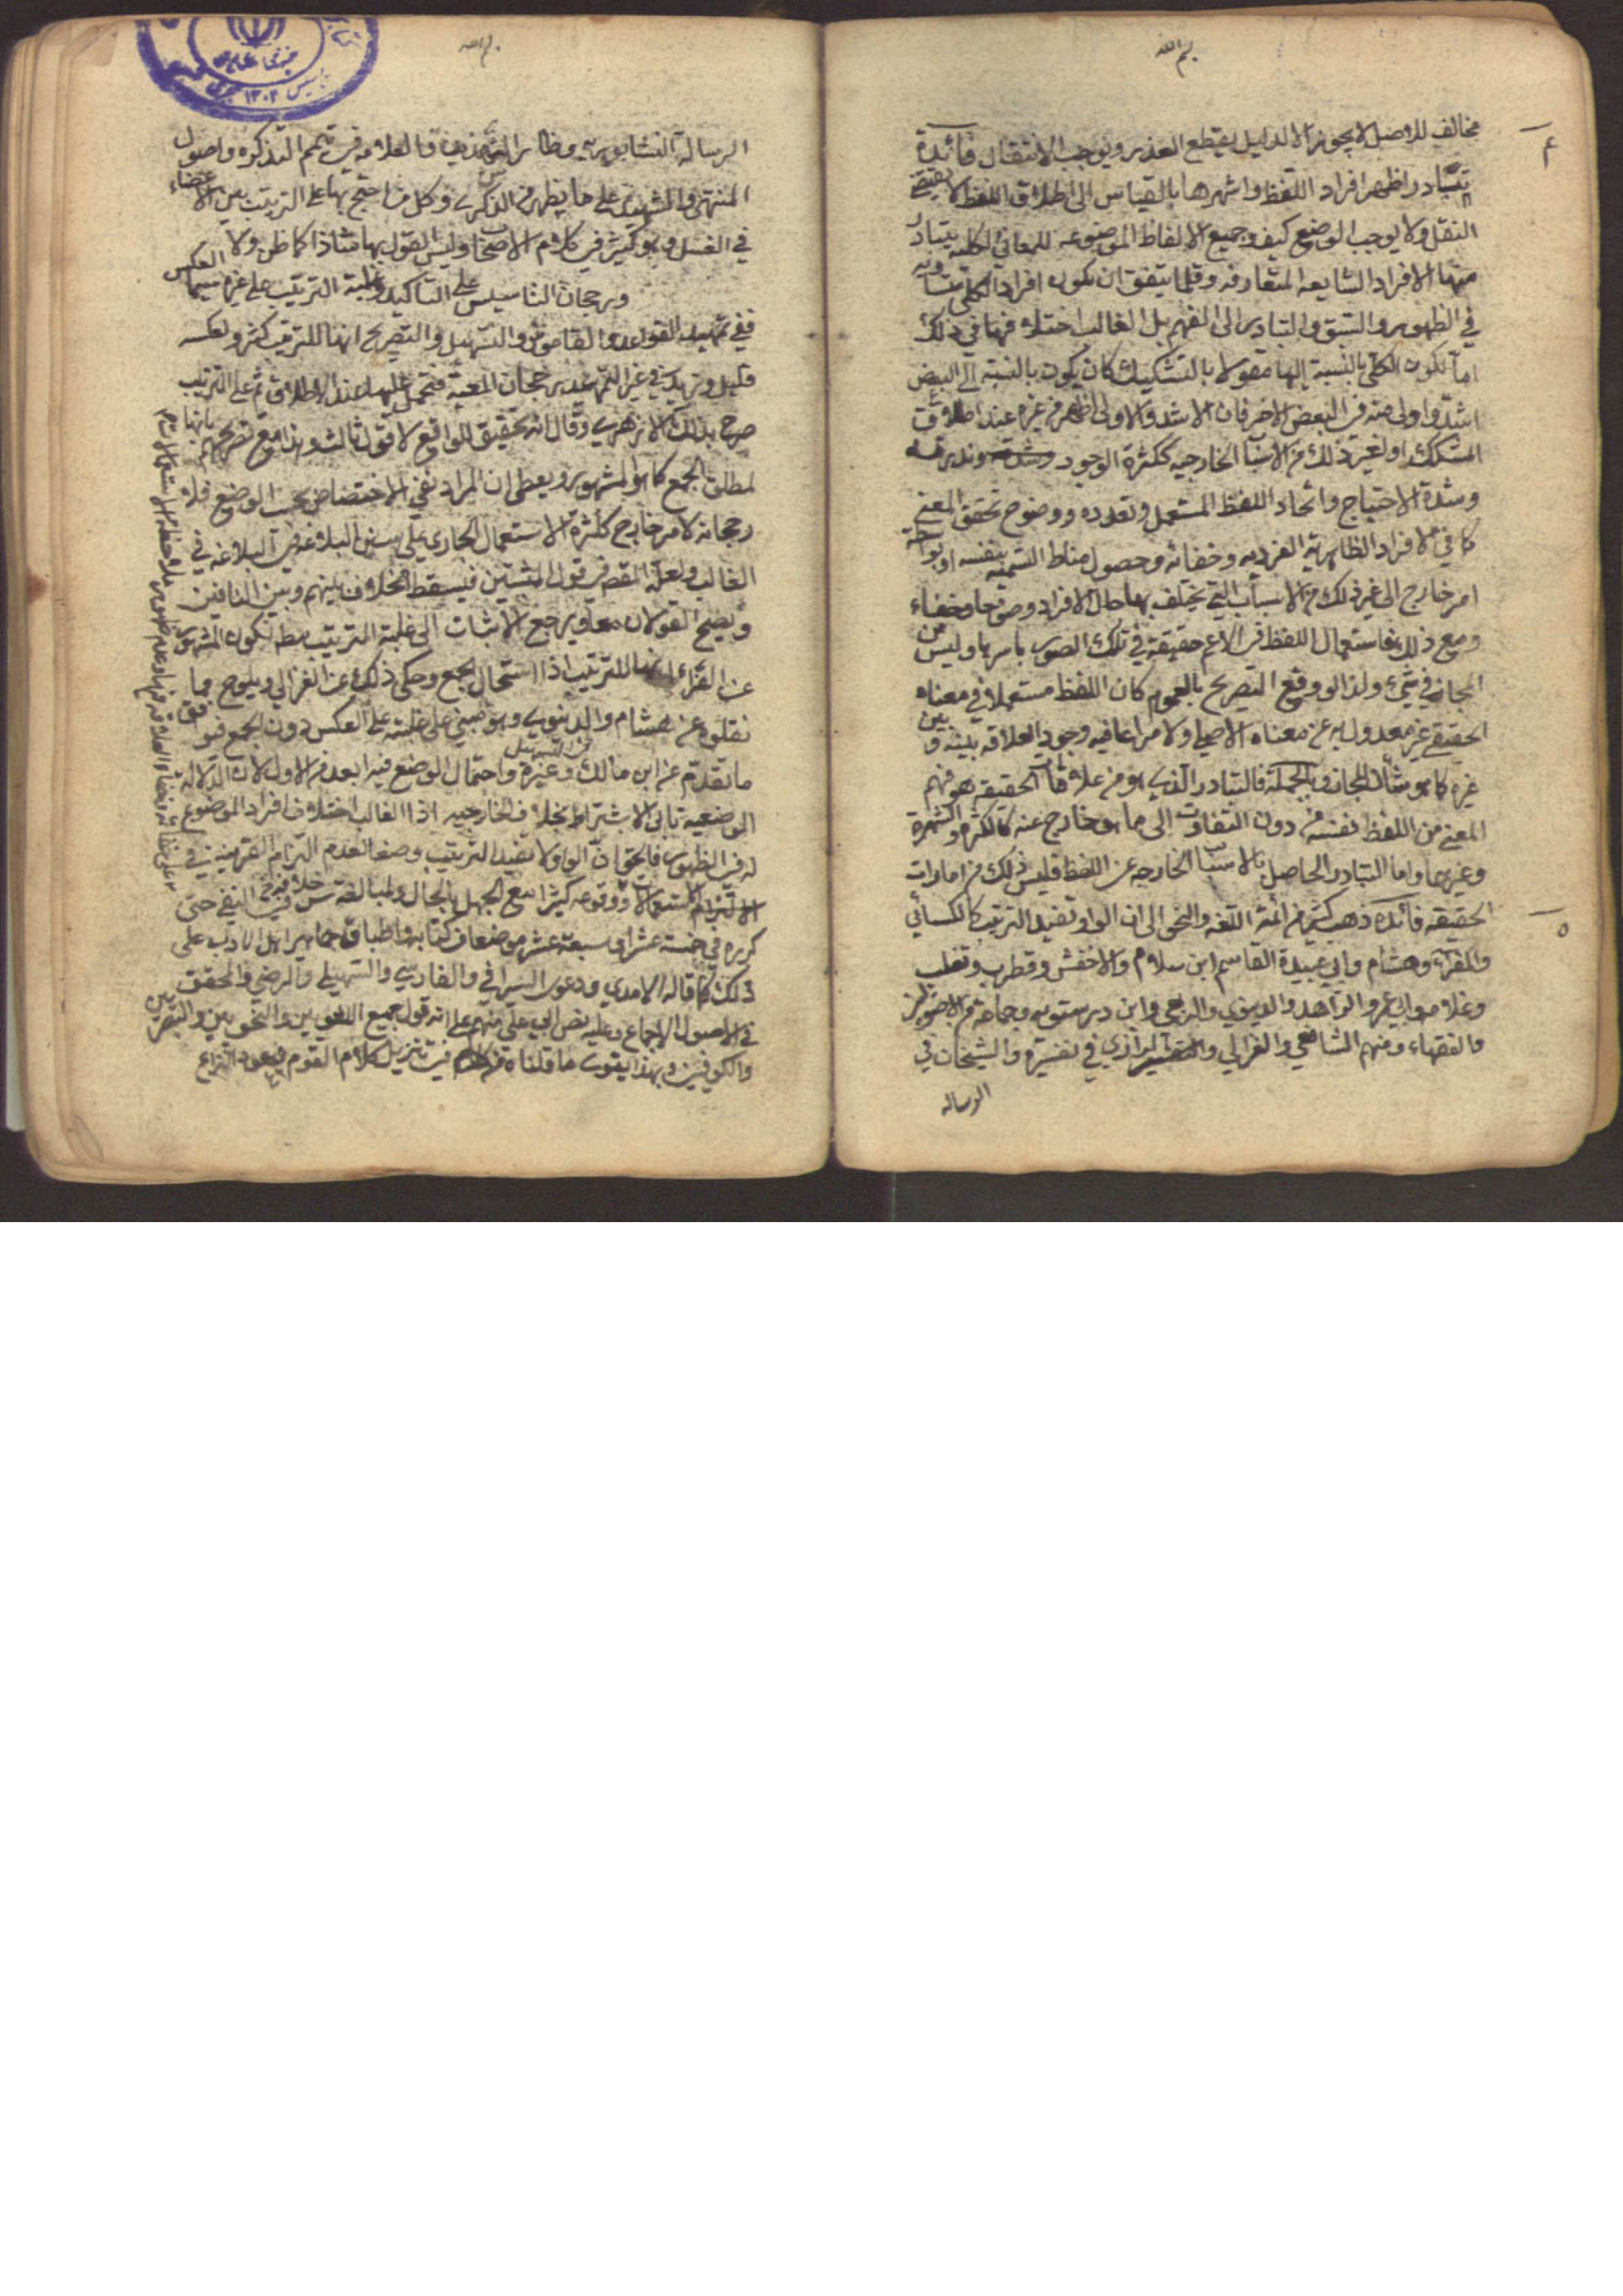 بسم الله
مخالف للاصل لا يجوز الا لدليل يقطع العذر ويوجب الانتقال فائدة
تبادر اظهر افراد اللفظ واشهرها بالقياس الى اطلاق اللفظ لا يقتضي
النقل ولا يوجب الوضع كيف وجميع الالفاظ الموضوعه للمعاني الكليه يتبادر
منها الافراد الشايعه المتعارفه وقلما يتفق ان يكون افراد الكلي متساويه
في الظهور والسبق والتبادر الى الفهم بل الغالب اختلاف فهمها في ذلك
اما لكون الكلي بالنسبة اليها مقولا بالتشكيك كان يكون بالنسبة الى البعض
اشد او اولى منه في البعض الاخر فان الاشد والاولى اظهر من غيره عند اطلاق
المشكك او لغير ذلك من الاسباب الخارجيه ككثرة الوجود وندرته
وشدة الاحتياج واتحاد اللفظ المستعمل وتعدده ووضوح تحقق المعنى
كما في الافراد الظاهرية الفرديه وخفائه وحصول مناط التسميه بنفسه او بواسطة
امر خارج الى غير ذلك من الاسباب التي يختلف بها حال الافراد وضوحا وخفاء
ومع ذلك فاستعمال اللفظ في الاعم حقيقة في تلك الصور باسرها وليس من
المجاز في شيء ولذا لو وقع التصريح بالعموم كان اللفظ مستعملا في معناه
الحقيقي غير معدول به عن معناه الاصلي ولا مراعا فيه وجود العلاقه بينه وبين
غيره كما هو شأن المجاز وبالجملة فالتبادر الذي هو من علامات الحقيقه هو فهم
المعنى من اللفظ نفسه من دون التفات الى ما هو خارج عنه كالكثره والشهرة
وغيرها واما التبادر الحاصل بالاسباب الخارجه عن اللفظ فليس ذلك من امارات
الحقيقه فائده ذهب كثير من ائمة اللغه والنحو الى ان الواو تفيد الترتيب كالكسائي
والفراء وهشام وابي عبيدة القاسم ابن سلام والاخفش وقطرب وثعلب
وغلامه ابي عمر والزاهد والدينوري والربعي وابن درستويه وجماعة من الاصوليين
والفقهاء ومنهم الشافعي والغزالي والرازي في تفسيره والشيخان في
الرساله
بسم الله
الرسالة النيشابوريه وظاهر التهذيب والعلامه في متمم التذكره واصول
المنتهى والشهيد على ما يظهر من الذكرى وكل من احتج بها على الترتيب بين الاعضاء
في الغسل وهو كثير في كلام الاصحاب وليس القول بها شاذا كما ظن ولا
ورجحان التاسيس على التاكيد وغلبة الترتيب على غيره سيما العكس
ففي تمهيد القواعد والقاموس والتسهيل والتصريح انها للترتيب كثير ولعكسه
قليل ويزيد في غير التمهيد رجحان المعية فتحمل عليها عند الاطلاق ثم على الترتيب
صرح بذلك الازهري وقال انه تحقيق للواقع لا قول ثالث وهذا مع تصريحهم بانها
لمطلق الجمع كما هو المشهور ويعطي ان المراد نفي الاختصاص بحسب الوضع فلا
رجحانه لامر خارج ككثرة الاستعمال الجاري على سنن البلاغه في
الغالب ولعله المقصد في قول المثبتين فيسقط الخلاف بينهم وبين النافين
ويصح القولان معا ويرجع الاثبات الى غلبة الترتيب
عن الفراء انها للترتيب اذا استحال الجمع وحكى ذلك عن الغزالي ويلوح مما
نقلوه عن هشام والدينوري وهو مبني على غلبته على العكس دون الجمع فيوافق
ما تقدم عن ابن مالك وغيره واحتمال الوضع فيه ابعد من الاول لان الدلالة
الوضعيه تابى الاشتراط بخلاف الخارجيه اذ الغالب اختلاف افراد الموضوع
له في الظهور فالحق ان الواو لا تفيد الترتيب وضعا لعدم التزام القرينة في
الاستعمالات ووقوعه كثيرا مع الجهل بالحال ولمبالغة س في النفي حتى
كرره في خمسة عشر او سبعة عشر موضعا من كتابه واطباق جماهير اهل الادب على
ذلك كما قاله الامدي ودعوى السيرافي والفارسي والسهيلي والرضي والمحقق
في الاصول الاجماع وعليه نص ابي علي منهم على انه قول جميع اللغويين والنحويين والبصريين
والكوفيين وبهذا يقوى ما قلناه في تنزيل كلام القوم فيعود النزاع